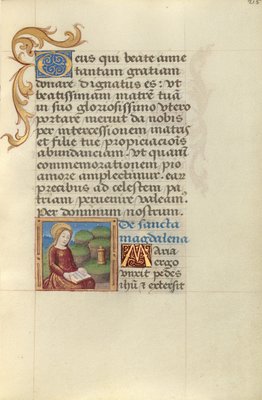 215
Deus qui beate anne
tantam gratiam
donare dignatus es: vt
beatissimam matrē tuā
in suo gloriosissimo vtero
portare meruit da nobis
per intercessionem matris
et filie tue propiciacōis
abundanciam. vt quarū
commemorationem pio
amore amplectimur. ear
precibus ad celestem pa
triam peruenire valeam9.
Per dominum nostrum.
De sancta
magdalena
Maria
ergo
vnxit pedes
ihū & extersit